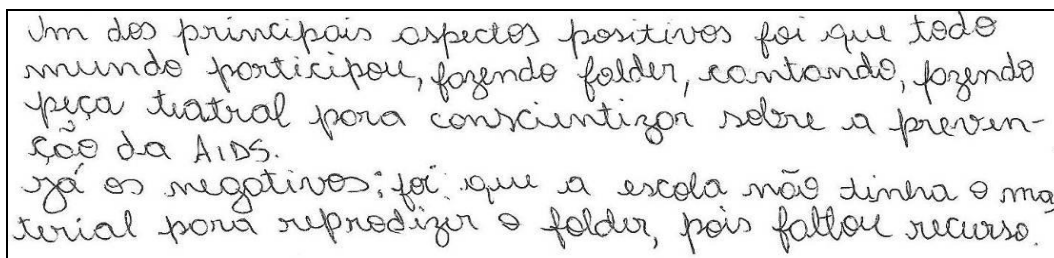 Um dos principais aspectos positivos foi que todo
mundo participou, fazendo folder, cantando, fazendo
peça teatral para conscientizar sobre a preven-
ção da AIDS.
Já os negativos; foi que a escola não tinha o ma
terial para reprodizir o folder, pois faltou recurso.